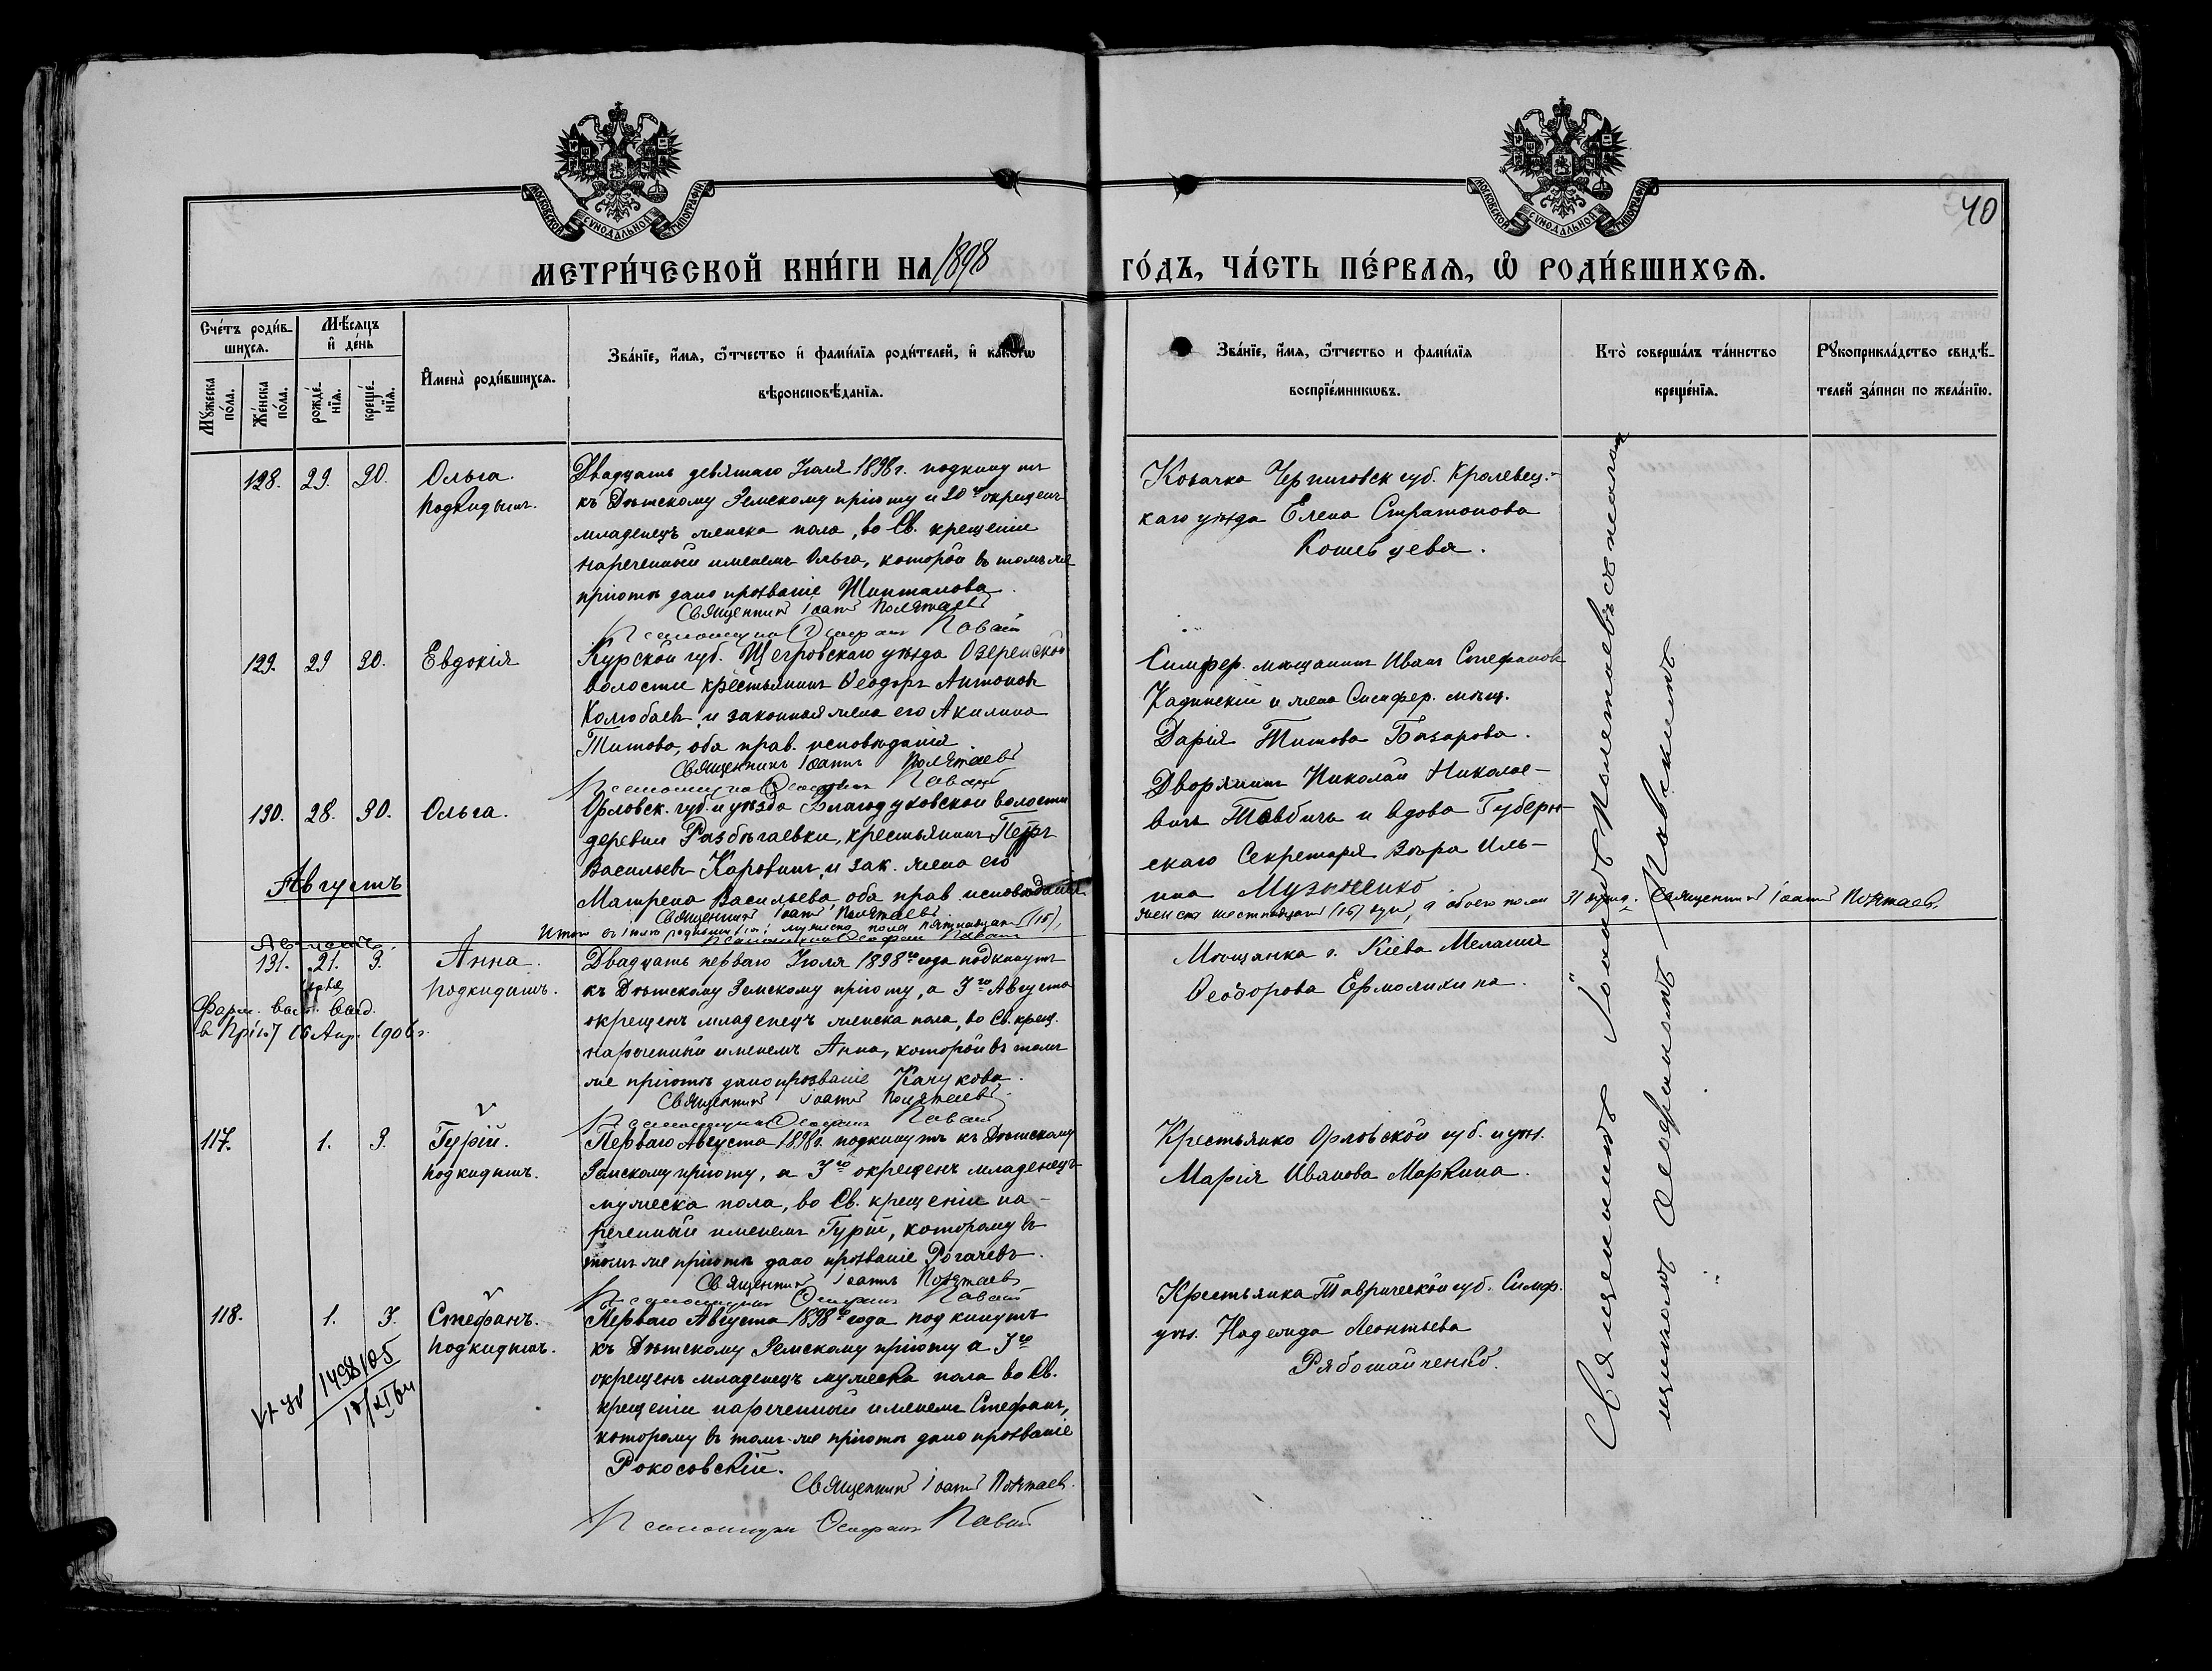 МОСКОВСКОЙ СѴНОДАЛЬНОЙ ТИПОГРАФІИ
МОСКОВСКОЙ СѴНОДАЛЬНОЙ ТИПОГРАФІИ
40
МЕТРИ́ЧЕСКОЙ КНИ́ГИ НА 1898
ГО́ДЪ, ЧА́СТЬ ПЕ́РВАѦ, Ѽ РОДИ́ВШИХСѦ.
Сче́тъ роди́вшихсѧ.
Мѣ́сѧцъ и де́нь
Мꙋ́жеска по́ла.
Же́нска по́ла.
рожде́нїѧ.
креще́нїѧ.
Имена̀ роди́вшихсѧ.
Зва́нїе, и́мѧ, ѻ҆́тчество и҆ фами́лїѧ роди́телей, и҆ како́гѡ
вѣроисповѣ́данїѧ.
Зва́нїе, и́мѧ, ѻ҆́тчество и фами́лїѧ
воспрїе́мникѡвъ.
Кто̀ соверша́лъ та́инство
креще́нїѧ.
Рꙋкоприкла́дство свидѣ́телей за́писи по жела́нїю.
128. 29. 30. Ольга.
подкидышъ.
Двадцать девятаго Іюля 1898 г. подкинутъ
къ Дѣтскому Земскому пріюту и 30го окрещенъ
младенецъ женска пола, во Св. крещеніи
нареченный именемъ Ольга, которой въ томъ же
пріютѣ дано прозваніе
Священникъ Іоаннъ Полетаевъ
Псаломщикъ Ѳеофанъ
Козачка Черниговск. губ. Кролевецкаго уѣзда Елена Стратонова
129. 29 30. Евдокія
Курской губ. Щегровскаго уѣзда Озеренской
волости крестьянинъ Ѳеодоръ Антоновъ
Колюбаевъ, и законная жена его Акилина
Титова, оба прав. исповѣданія
Священникъ Іоаннъ Полетаевъ
Псаломщикъ Ѳеофанъ
Симфер. мѣщанинъ Иванъ Стефановъ
Кадинскій и жена Симфер. мѣщ.
Дарія Титова Базарова.
130. 28. 30. Ольга.
Орловск. губ. и уѣзда Благодуховской волости
деревни Разбѣгаевки, крестьянинъ Петръ
Васильевъ Каровинъ, и зак. жена его
Матрена Васильева, оба прав. исповѣданія
Священникъ Іоаннъ Полетаевъ
Псаломщикъ Ѳеофанъ
Дворянинъ Николай Николаевичъ Товбичъ и вдова Губернскаго Секретаря Вѣра Ильина Музыченко
Августъ
Итого въ іюлѣ родившихся: мужеска пола пятнадцать (15),
женска шестнадцать (16) душъ, а обоего пола 31 душа. Священникъ Іоаннъ Полетаевъ.
Августъ.
131. 21. 3. Анна.
іюля подкидышъ.
Двадцать перваго Іюля 1898го года подкинутъ
къ Дѣтскому Земскому пріюту, а 3го Августа
окрещенъ младенецъ женска пола, во Св. крещ.
нареченный именемъ Анна, которой въ томъ
же пріютѣ дано прозваніе Качукова.
Священникъ Іоаннъ Полетаевъ
Псаломщикъ Ѳеофанъ
Мѣщанка г. Кіева Меланія
Ѳеодорова Ермолихина.
выд.
в Пріют 16 Апр. 1906 г.
117. 1. 3. Гурій.
подкидышъ.
Перваго Августа 1898 г. подкинутъ къ Дѣтскому
Земскому пріюту, а 3го окрещенъ младенецъ
мужеска пола, во Св. крещеніи нареченный именемъ Гурій, которому въ
томъ же пріютѣ дано прозваніе Рогачевъ.
Священникъ Іоаннъ Полетаевъ
Псаломщикъ Ѳеофанъ
Крестьянка Орловской губ. и уѣз.
Марія Иванова Маркина.
118. 1. 3. Стефанъ.
подкидышъ.
Перваго Августа 1898го года подкинутъ
къ Дѣтскому Земскому пріюту а 3го
окрещенъ младенецъ мужеска пола во Св.
крещеніи нареченный именемъ Стефанъ,
которому въ томъ-же пріютѣ дано прозваніе
Рокосовскій.
Священникъ Іоаннъ Полетаевъ.
Псаломщикъ Ѳеофанъ
Крестьянка Таврической губ. Симф.
уѣз. Надежда Леонтьева
Рябошайченко.
Священникъ Іоаннъ Полетаевъ съ псаломщикомъ Ѳеофаномъ